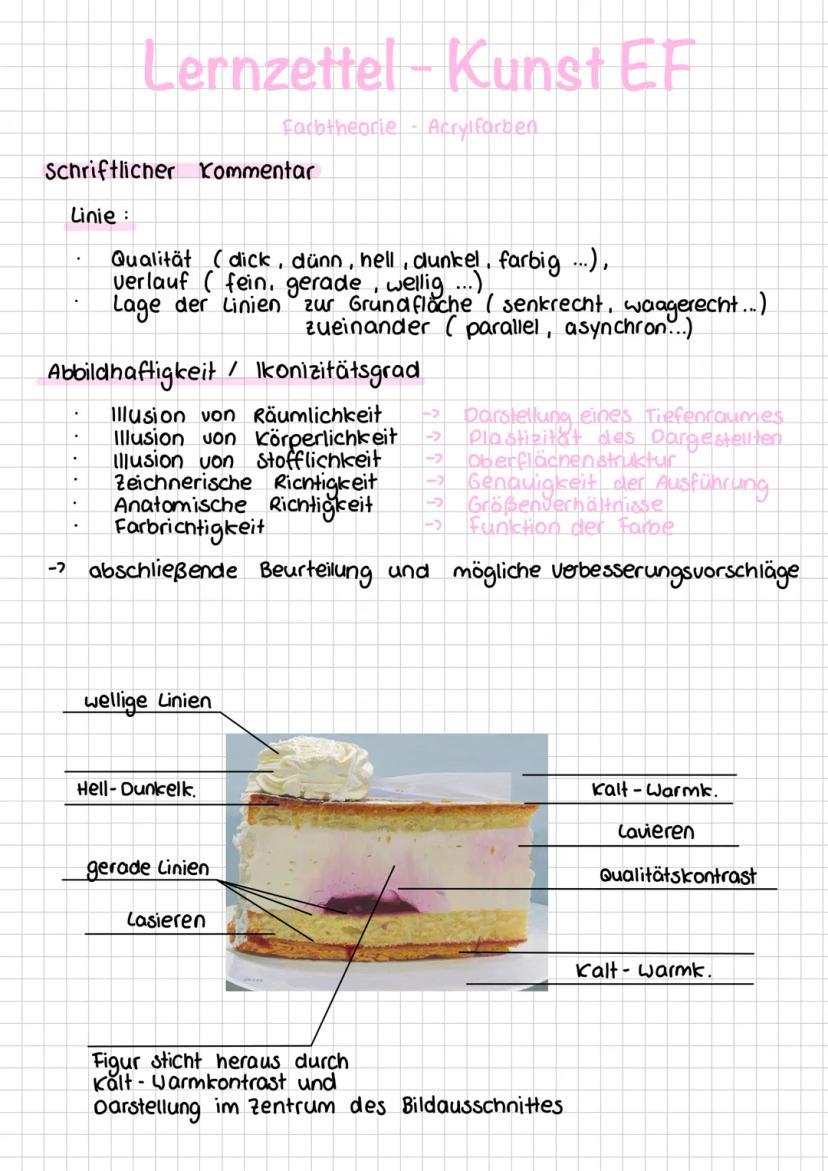 Lernzettel - Kunst EF
Farbtheorie - Acrylfarben
Schriftlicher Kommentar
Linie :
· Qualität ( dick , dünn , hell , dunkel , farbig ... ) ,
Verlauf ( fein , gerade , wellig ... )
· Lage der Linien zur Grundfläche ( senkrecht , waagerecht ... )
zueinander ( parallel , asynchron ... )
Abbildhaftigkeit / Ikonizitätsgrad
· Illusion von Räumlichkeit -> Darstellung eines Tiefenraumes
· Illusion von Körperlichkeit -> Plastizität des Dargestellten
· Illusion von Stofflichkeit -> Oberflächenstruktur
· Zeichnerische Richtigkeit -> Genauigkeit der Ausführung
· Anatomische Richtigkeit -> Größenverhältnisse
· Farbrichtigkeit -> Funktion der Farbe
-> abschließende Beurteilung und mögliche Verbesserungsvorschläge
wellige Linien
Hell-Dunkelk.
Kalt - Warmk.
Lavieren
gerade Linien
Qualitätskontrast
Lasieren
Kalt - Warmk.
Figur sticht heraus durch
Kalt - Warmkontrast und
Darstellung im Zentrum des Bildausschnittes